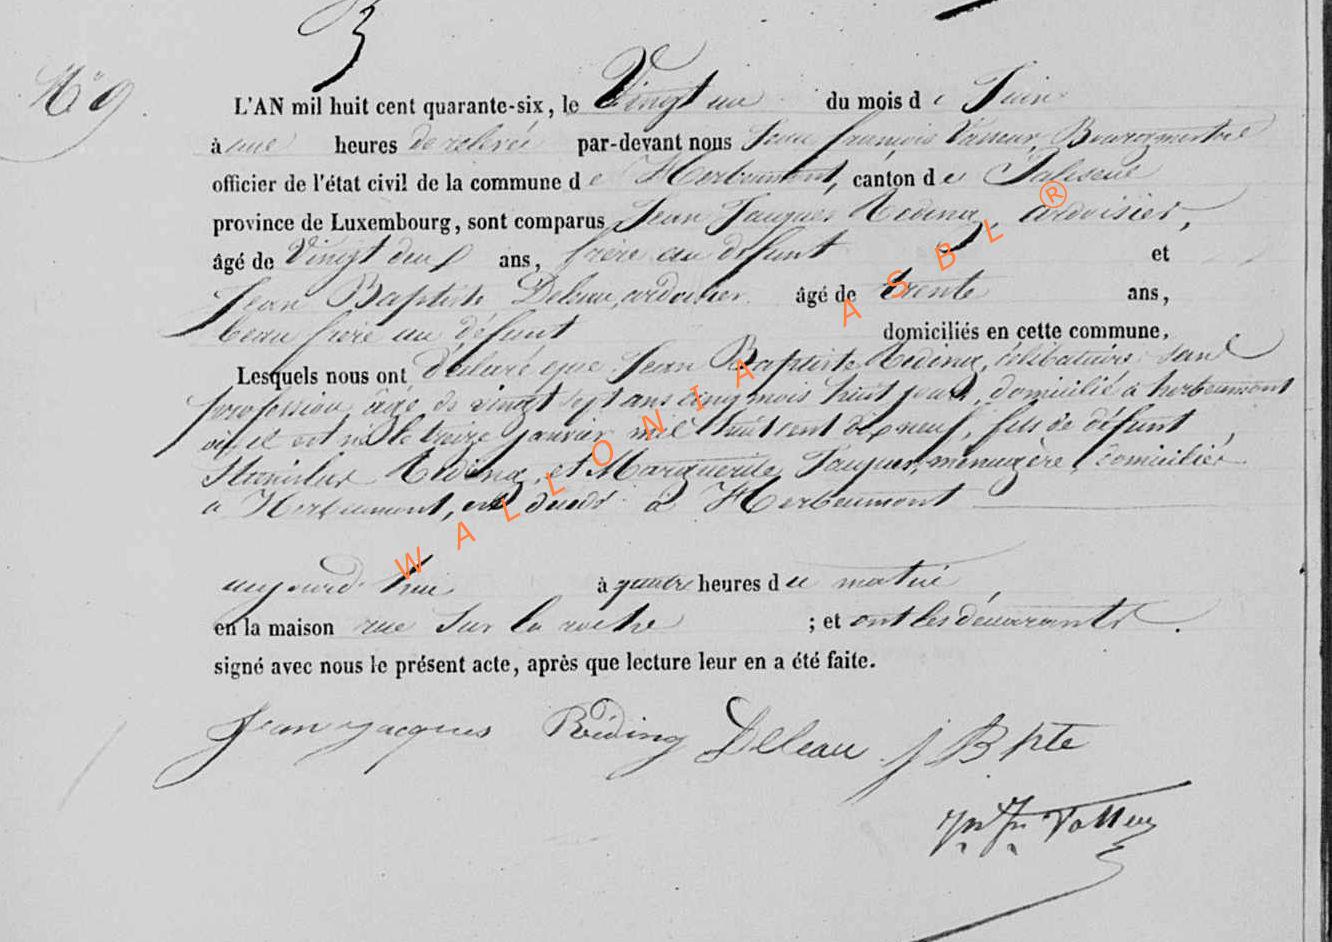 3
N° 9.
L'AN mil huit cent quarante-six, le Vingt un du mois de Juin
à une heures de relevée par-devant nous Jean françois Vasseur, Bourgmestre
officier de l'état civil de la commune de Herbeumont, canton de Paliseul
province de Luxembourg, sont comparus Jean Jacques Reding, ardoisier,
âgé de Vingt deux ans, frère au défunt et
Jean Baptiste Deleau, ardoisier âgé de trente ans,
beau frère au défunt domiciliés en cette commune,
Lesquels nous ont déclaré que Jean Baptiste Reding, célibataire, sans
profession, âgé de vingt sept ans cinq mois huit jours, domicilié à herbeumont
où il est né le treize janvier mil huit cent dix neuf, fils de défunt
Stanislas Reding, et Marguerite Jacques, ménagère, domiciliés
à Herbeumont, est décédé à Herbeumont
aujourd'hui à quatre heures du matin
en la maison rue sur la roche ; et ont les déclarants
signé avec nous le présent acte, après que lecture leur en a été faite.
Jean jacques Réding Deleau j Bpte
WALLONIA ASBL ®